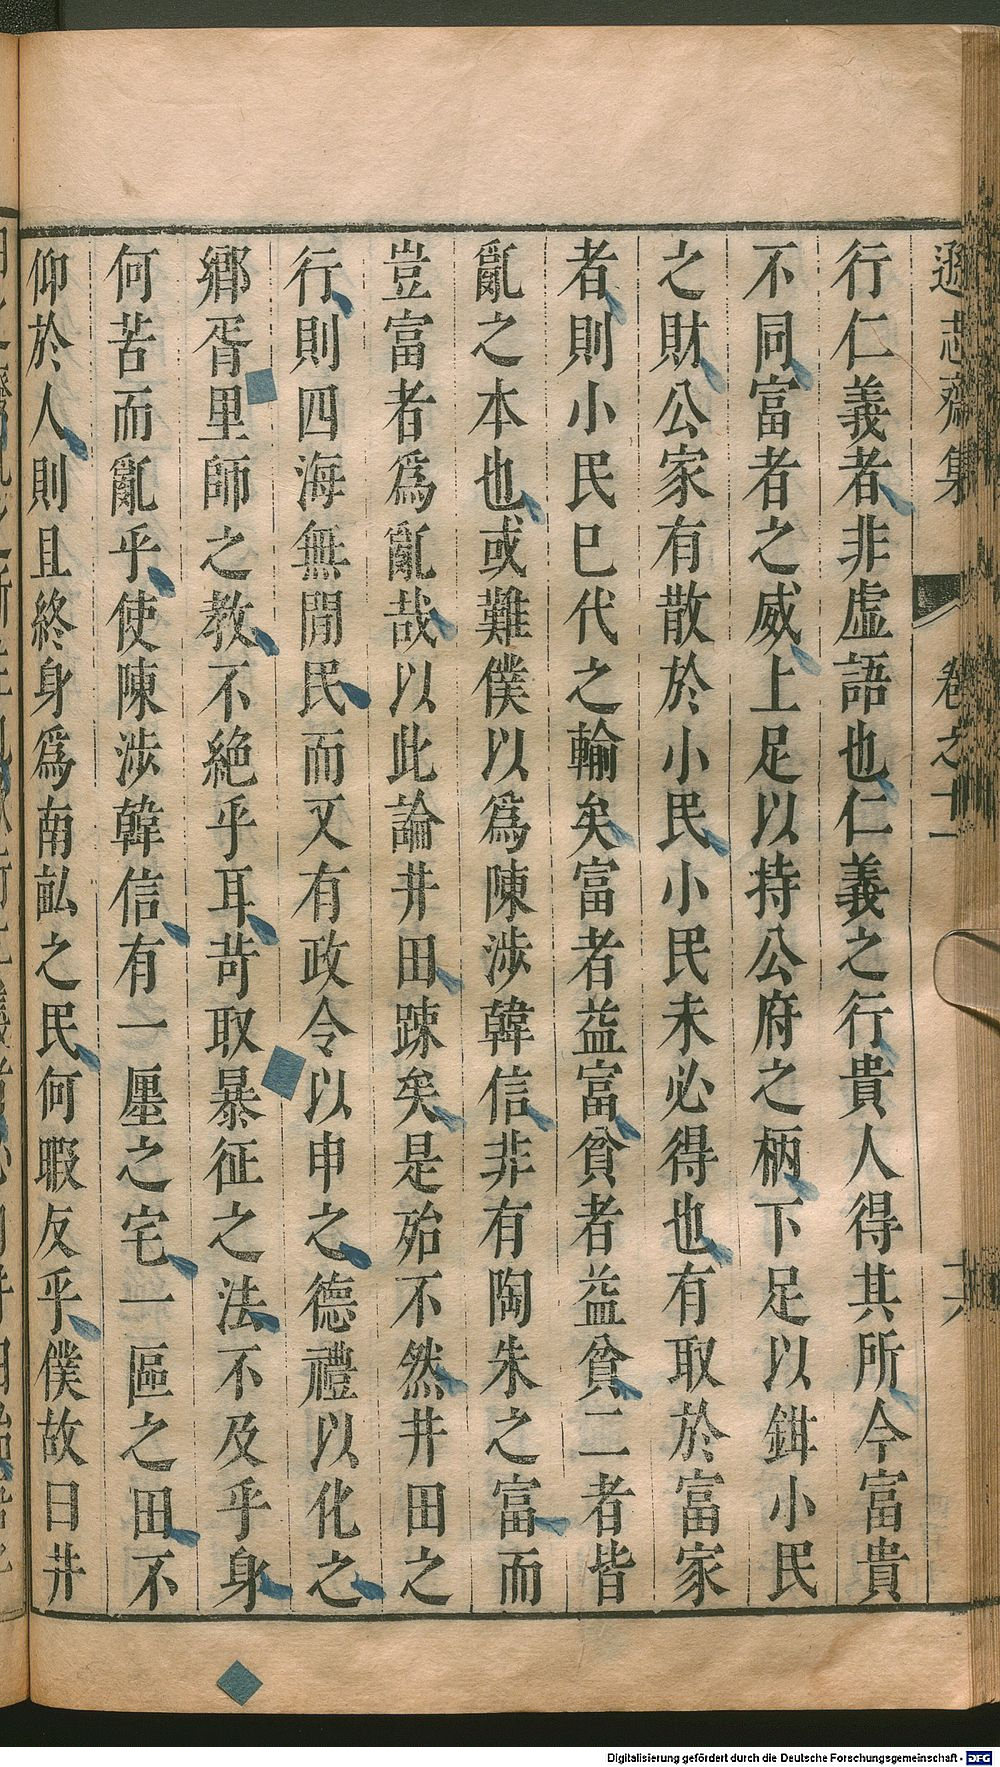 遜志齋集 卷之十一 十六
行仁義者非虛語也仁義之行貴人得其所今富貴
不同富者之威上足以持公府之柄下足以鉗小民
之財公家有散於小民小民未必得也有取於富家
者則小民已代之輸矣富者益富貧者益貧二者皆
亂之本也或難僕以為陳涉韓信非有陶朱之富而
豈富者為亂哉以此論井田疎矣是殆不然井田之
行則四海無閒民而又有政令以申之德禮以化之
鄉胥里師之教不絕乎耳苛取暴征之法不及乎身
何苦而亂乎使陳涉韓信有一廛之宅一區之田不
仰於人則且終身為南畝之民何暇反乎僕故曰井
Digitalisierung gefördert durch die Deutsche Forschungsgemeinschaft - DFG